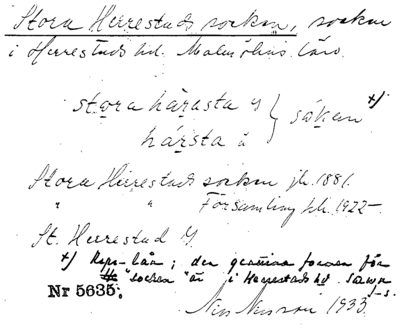 Stora Herrestads socken, socken
i Herrestads hd. Malmöhus län.
stora hărasta y } såkan +)
hársta ä
Stora Herrestads socken jb. 1881.
" " Församling kb. 1922-
St. Herrestad y
+) Rspr. län; den genuina formen för
"socken" är i Herrestads hd. sawn
Nr 5635. -s.
Nils Nilsson 1933.